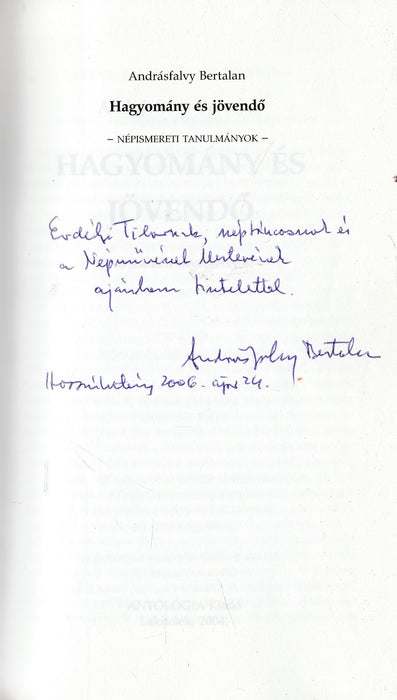 Andrásfalvy Bertalan
Hagyomány és jövendő
– NÉPISMERETI TANULMÁNYOK –
HAGYOMÁNY ÉS
JÖVENDŐ
Erdélyi Tibornak, néptáncosnak és
a Népművészet Mesterének
ajánlom tisztelettel.
Andrásfalvy Bertalan
Hosszúhetény 2006. ápr. 24.
ANTOLÓGIA Kiadó
Lakitelek, 2004.